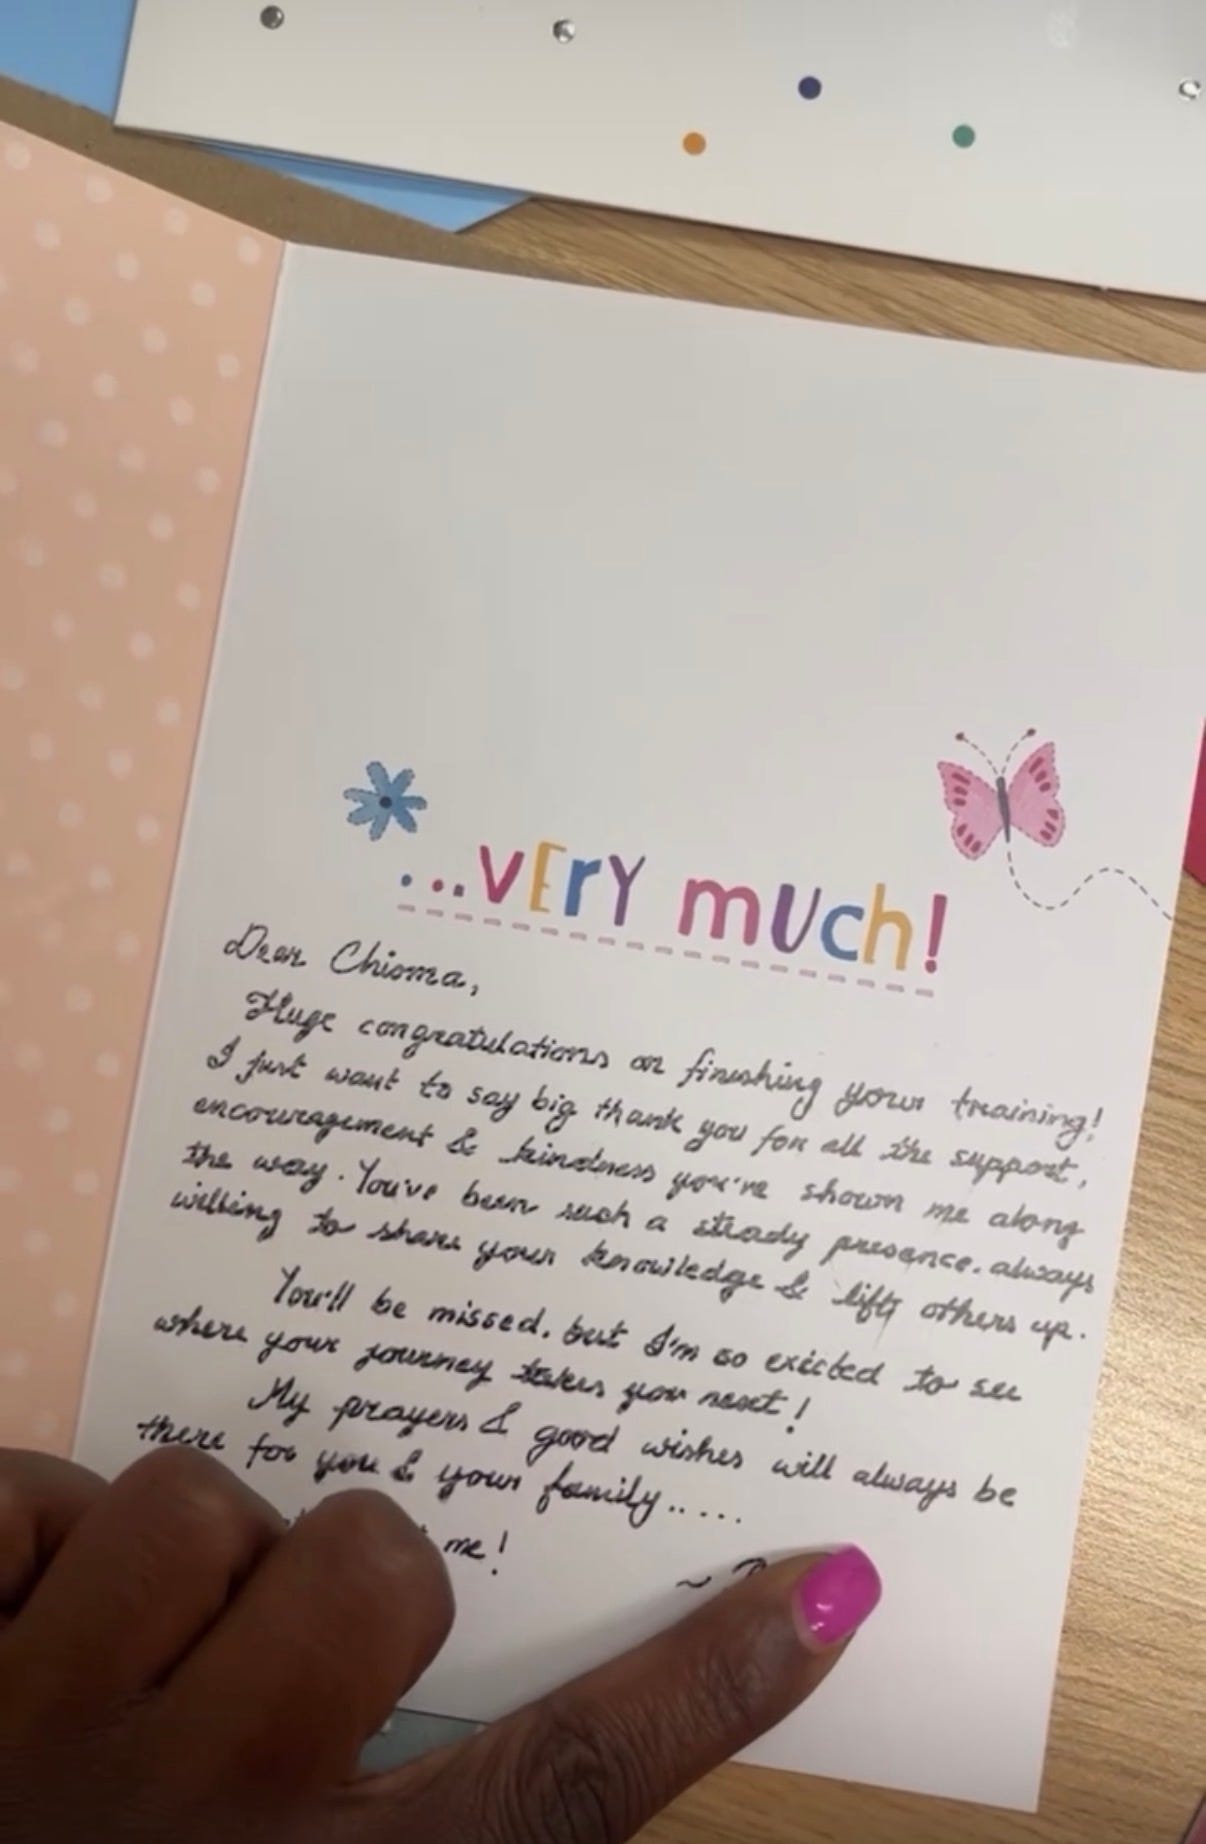 ...VErY mUch!
Dear Chioma,
Huge congratulations on finishing your training!
I just want to say big thank you for all the support,
encouragement & kindness you've shown me along
the way. You've been such a steady presence. always
willing to share your knowledge & lift others up.
You'll be missed, but I'm so exicted to see
where your journey takes you next!
My prayers & good wishes will always be
there for you & your family.....
me!
~